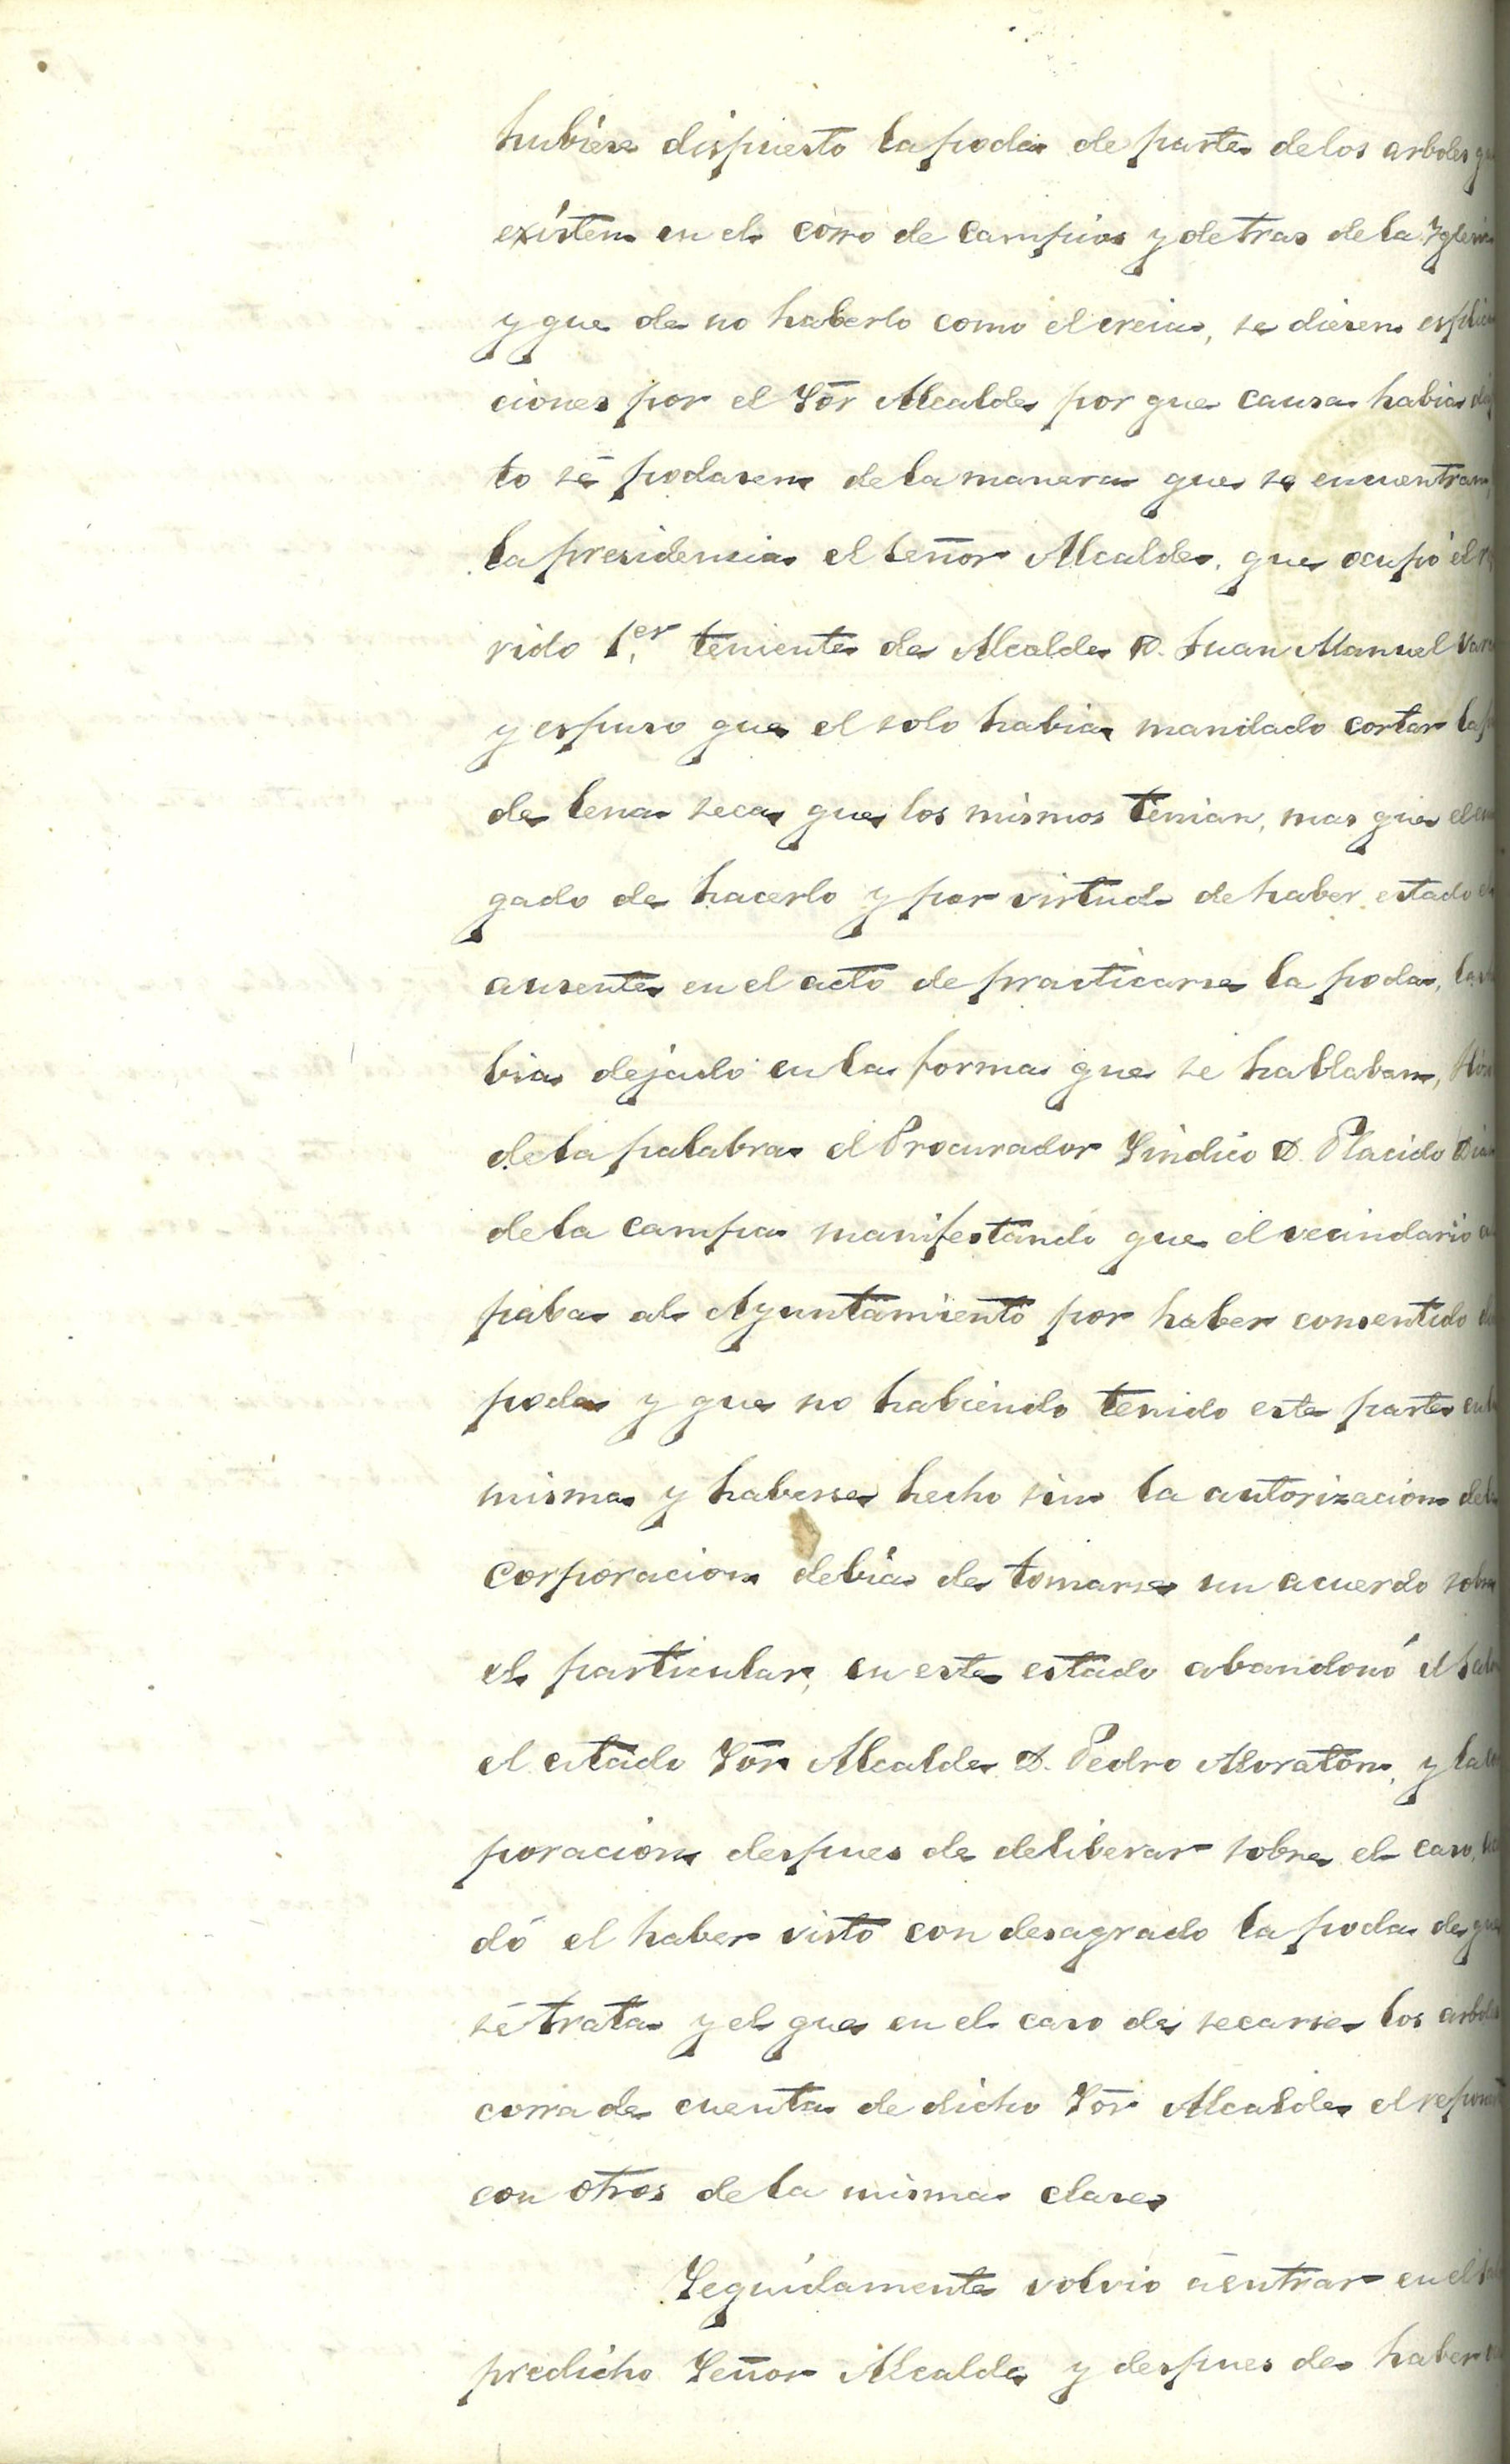 hubiera dispuesto la poda de parte de los arboles que
existen en el corro de campios y detras de la Yglesia
y que de no haberlo como el creia, se diesen esplica
ciones por el Sor Alcalde por que causa habia
to se podasen de la manera que se encuentran,
la presidencia el señor Alcalde, que ocupó el
rido 1.er teniente de Alcalde D. Juan Manuel
y espuso que el solo habia mandado cortar la
de lena seca que los mismos tenian, mas que el
gado de hacerlo y por virtud de haber estado
ausente en el acto de practicarse la poda,
bia dejado en la forma que se hallaban,
de la palabra el Procurador Sindico D. Placido
de la campa manifestando que el vecindario
paba al Ayuntamiento por haber consentido
poda y que no habiendo tenido este parte en
misma y haberse hecho sin la autorizacion de
corporacion debia de tomarse un acuerdo sobre
el particular, en este estado abandonó el
el citado Sor Alcalde D. Pedro Moraton, y la
poracion despues de deliberar sobre el caso,
dó el haber visto con desagrado la poda de que
se trata y el que en el caso de secarse los arboles
corra de cuenta de dicho Sor Alcalde el
con otros de la misma clase
Seguidamente volvio á entrar en el
predicho Señor Alcalde y despues de haber